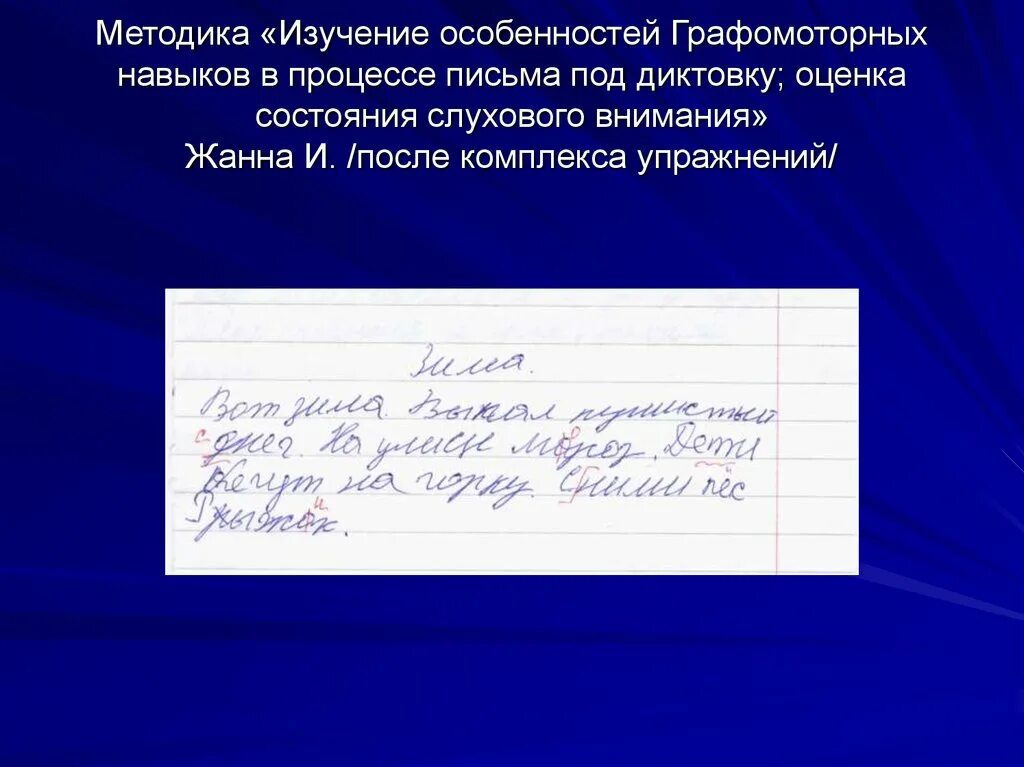 Методика «Изучение особенностей Графомоторных
навыков в процессе письма под диктовку; оценка
состояния слухового внимания»
Жанна И. /после комплекса упражнений/
Зима.
Вот зима. Выпал пушистый
с днег. На улицы мороз. Дети
бегут на горку. Сними пёс
Рыжок.